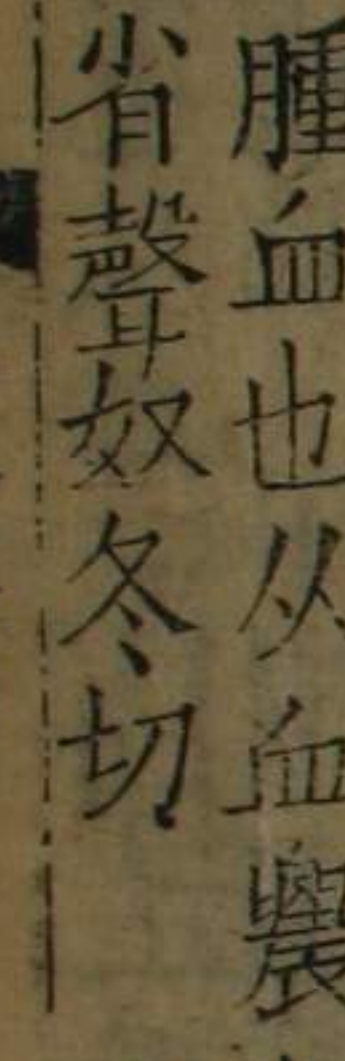 腫血也从血䢉
省聲奴冬切